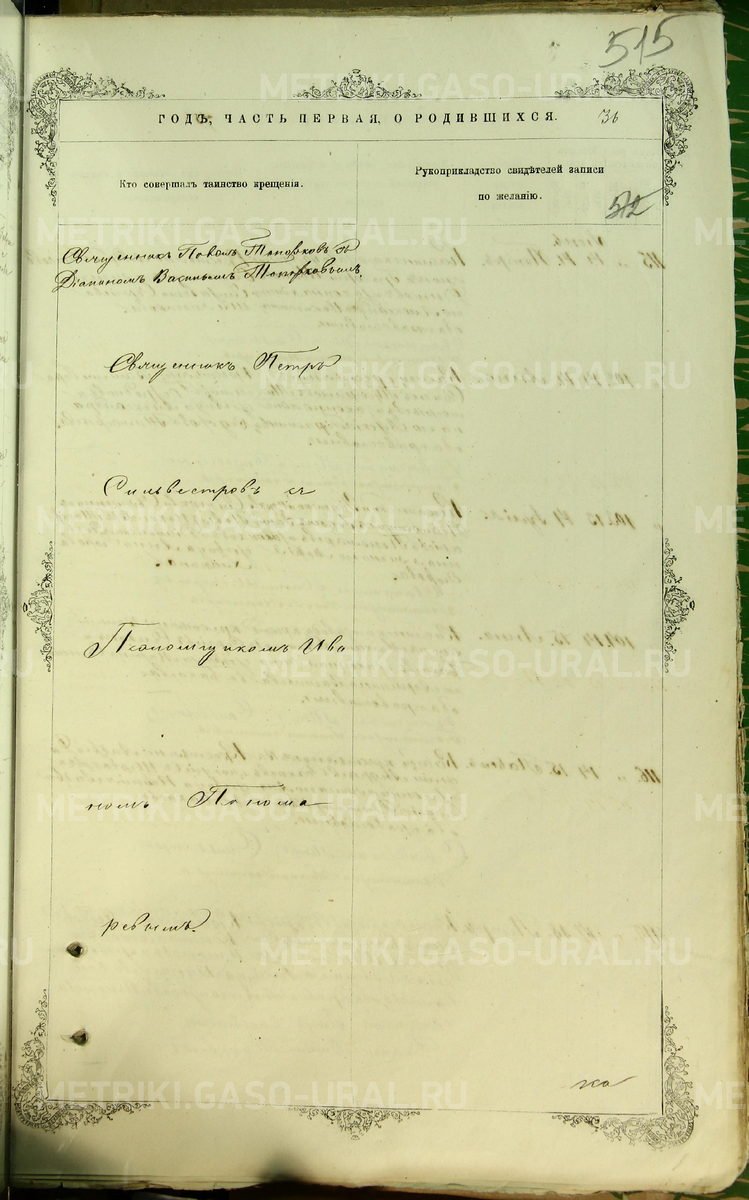 515
ГОДЪ, ЧАСТЬ ПЕРВАЯ, О РОДИВШИХСЯ.
36
Кто совершалъ таинство крещенія.
Рукоприкладство свидѣтелей записи
по желанію.
572
Священникъ Павелъ Топорковъ съ
Діакономъ Васильемъ Топорковымъ.
Священникъ Петръ
Сильвестровъ съ
Псаломщикомъ Ива
номъ Понома
ревымъ.
METRIKI.GASO-URAL.RU